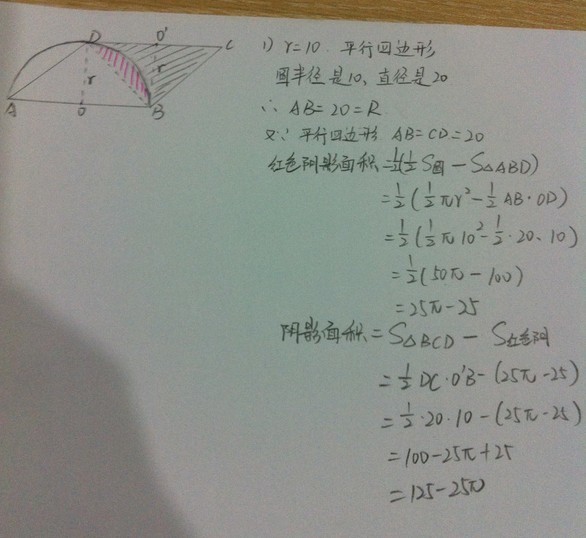 D O' C
r r
A O B
1) r=10. 平行四边形
圆半径是10、直径是20
∴ AB=20=R
又∵ 平行四边形 AB=CD=20
红色阴影面积=½(½S圆-S△ABD)
=½(½πr²-½AB·OD)
=½(½π10²-½·20·10)
=½(50π-100)
=25π-25
阴影面积=S△BCD-S红色阴
=½DC·O'B-(25π-25)
=½·20·10-(25π-25)
=100-25π+25
=125-25π